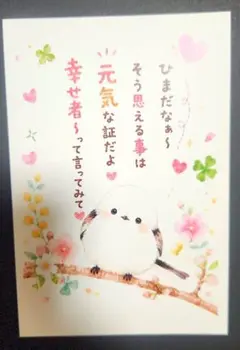 ひまだなぁ〜
そう思える事は
元気な証だよ
幸せ者〜って言ってみて